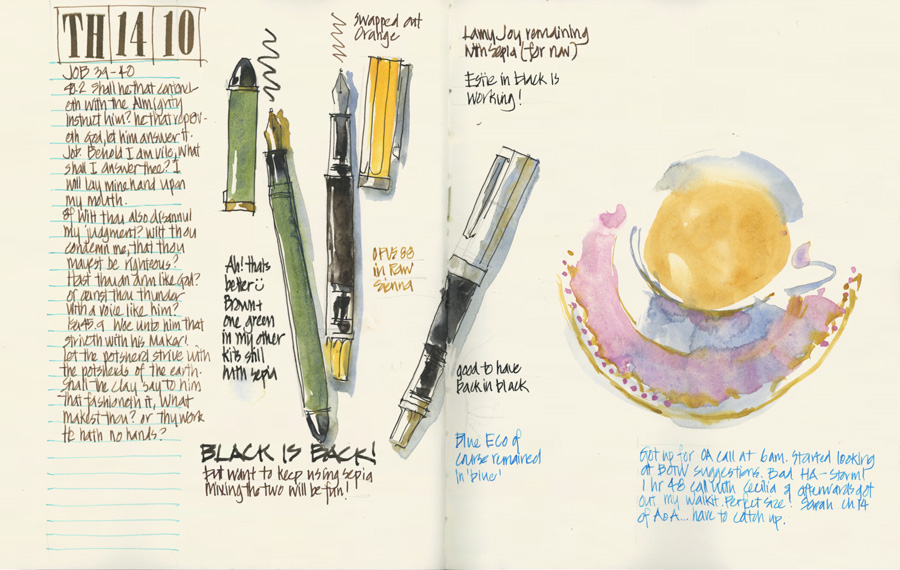 TH 14 10
JOB 39-40
40.2 Shall he that conten-
eth with the Almighty
instruct him? he that reprov-
eth God, let him answer it.
Job: Behold I am vile, what
shall I answer thee? I
will lay mine hand upon
my mouth.
8f Wilt thou also disannul
my judgment? Wilt thou
condemn me, that thou
mayest be righteous?
Hast thou an arm like God?
or canst thou thunder
with a voice like him?
Isa 45.9 Woe unto him that
striveth with his Maker!
Let the potsherd strive with
the potsherds of the earth.
Shall the clay say to him
that fashioneth it, What
makest thou? or thy work
He hath no hands?
swapped out
Orange
Ah! thats
better :)
Brown +
one green
in my other
kit still
hath sepia
OPUS 88
in Raw
Sienna
BLACK IS BACK!
but want to keep using sepia
Mixing the two will be fun!
Lamy Joy remaining
with sepia (for now)
Estie in black is
working!
good to have
back in black
Blue Eco of
course remained
in 'blue'
Got up for OA call at 6am. Started looking
at BOTW suggestions. Bad HA - Storm!
1 hr 48 call with Cecilia & afterwards got
out my walkit. Perfect size! Sarah ch 14
of AoA... have to catch up.